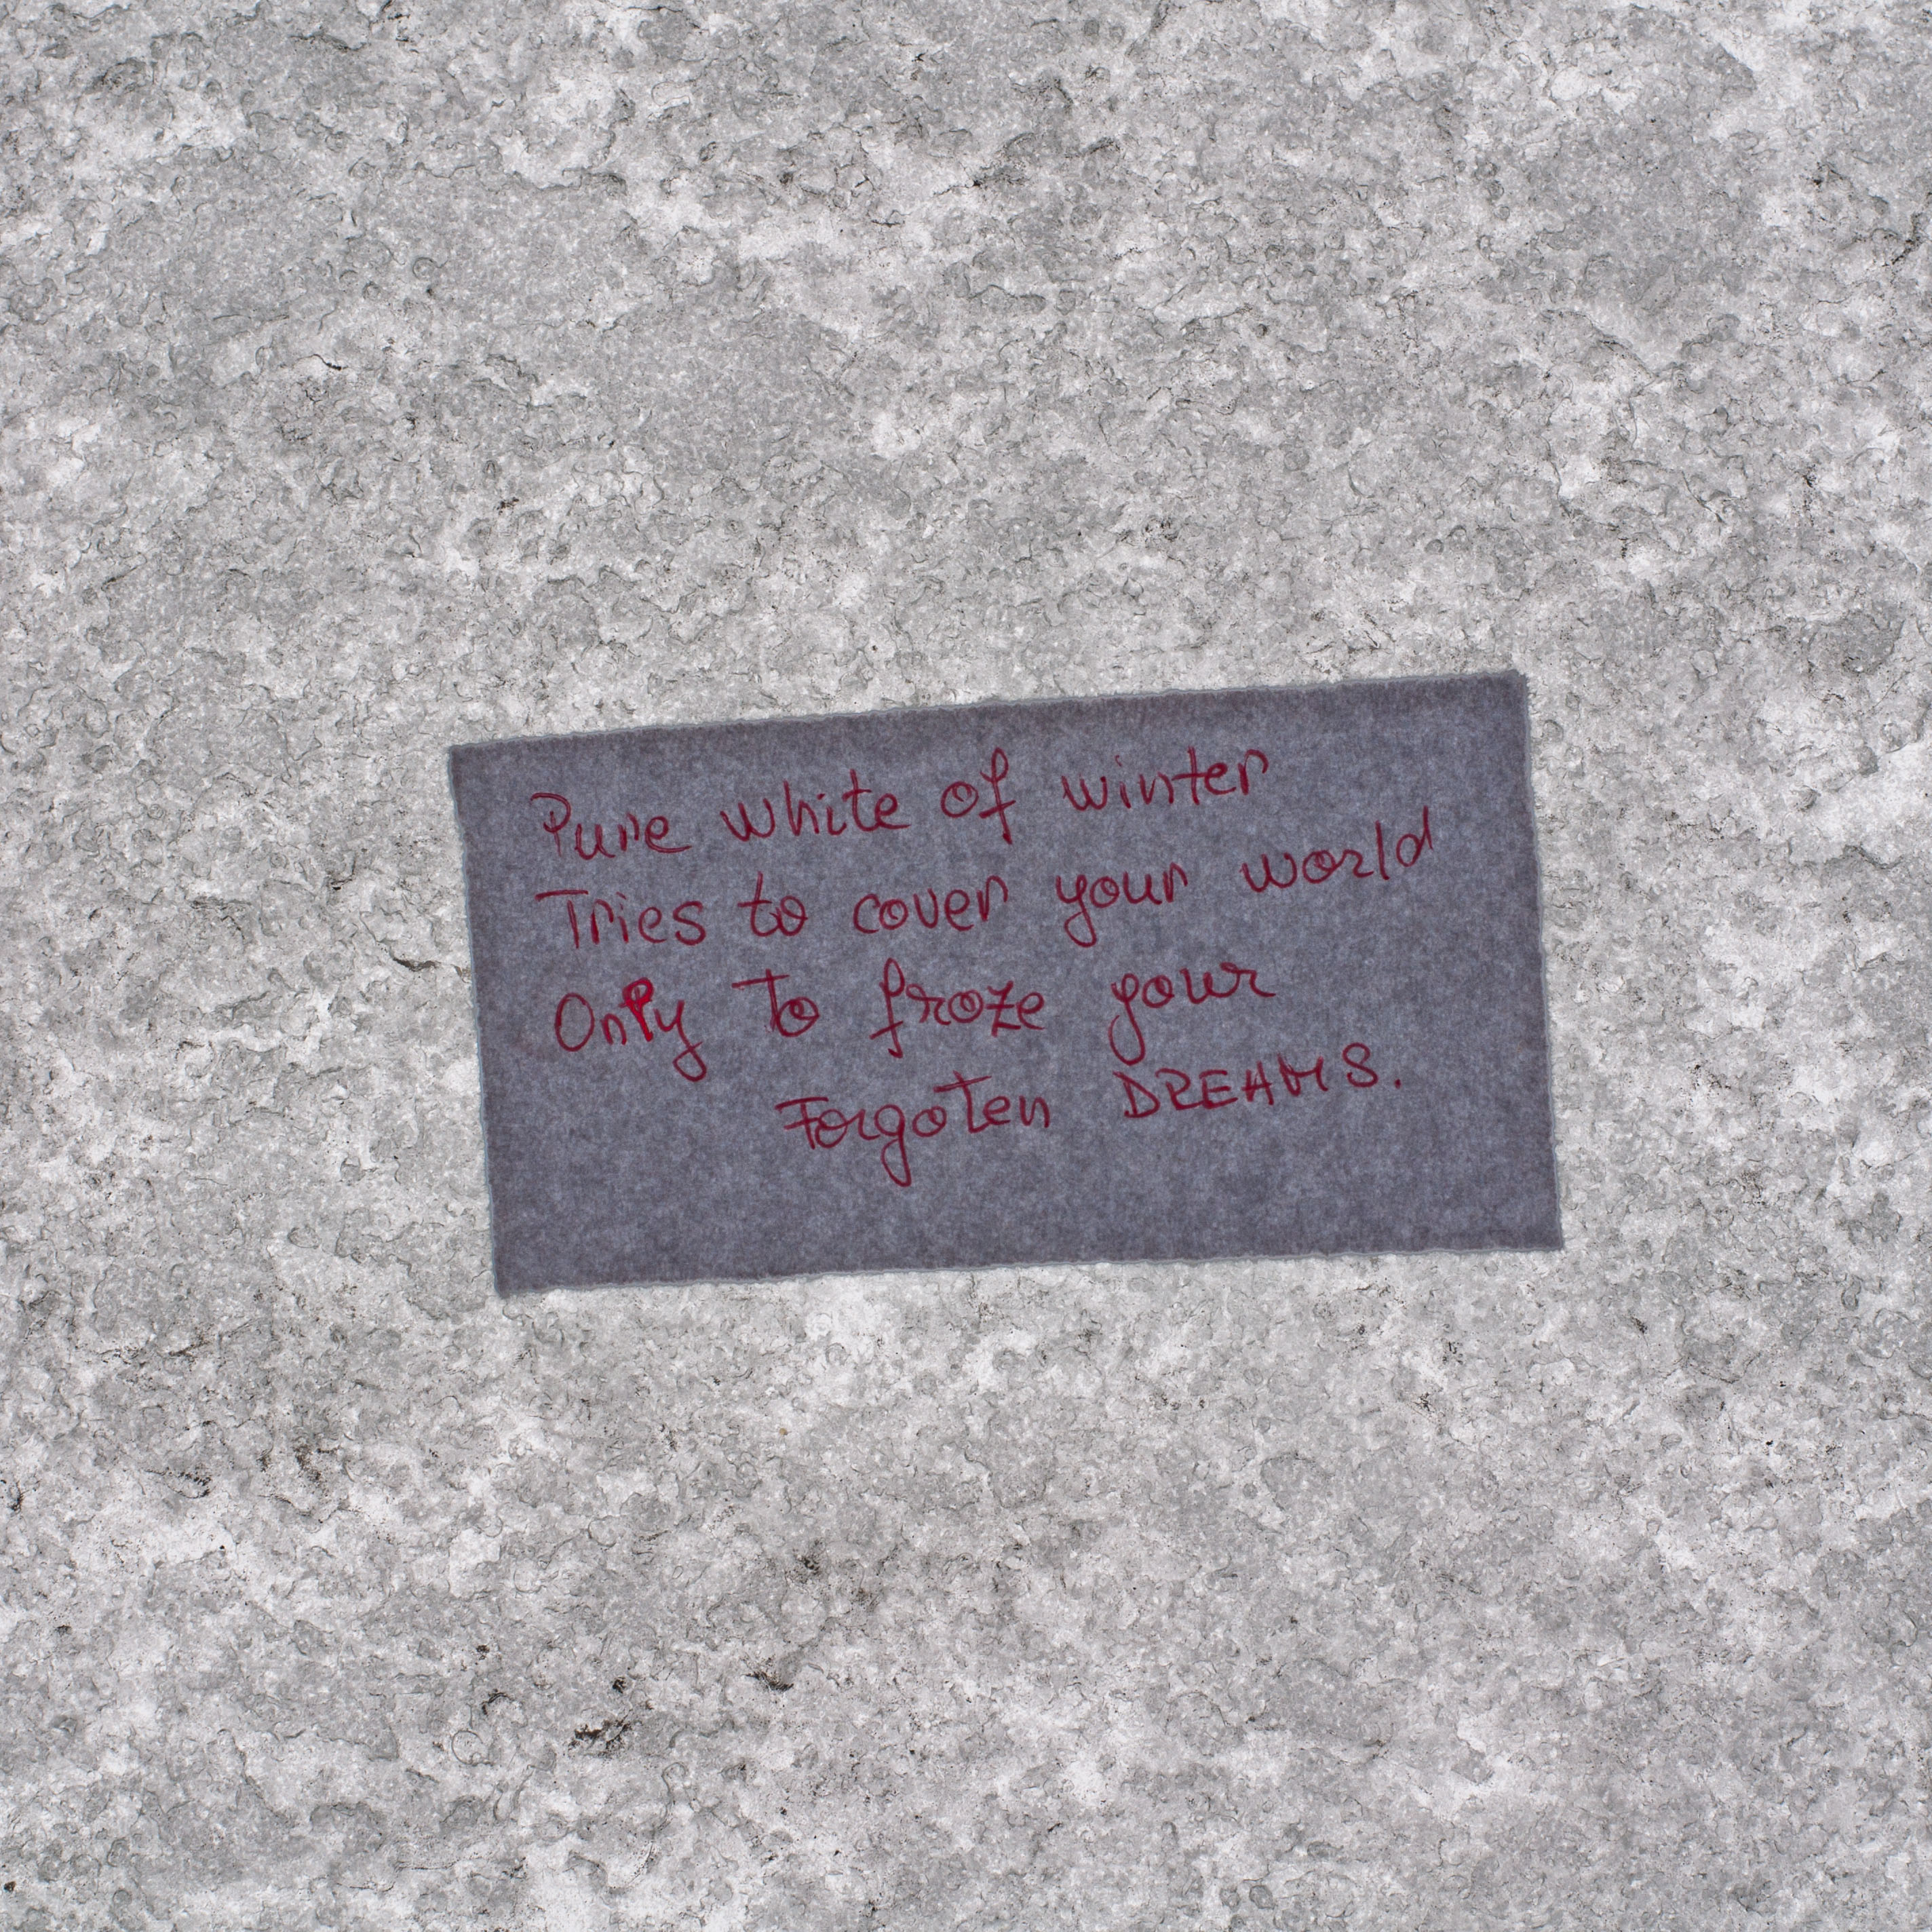 Pure white of winter
Tries to cover your world
Only to froze your
Forgoten DREAMS.